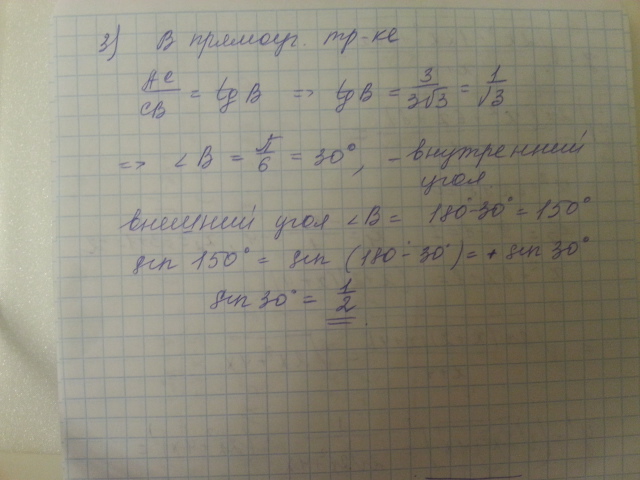 3) В прямоуг. тр-ке
AC/CB = tg B => tg B = 3/3√3 = 1/√3
=> ∠B = π/6 = 30°, - внутренний угол
внешний угол ∠B = 180°-30° = 150°
sin 150° = sin (180° - 30°) = + sin 30°
sin 30° = 1/2